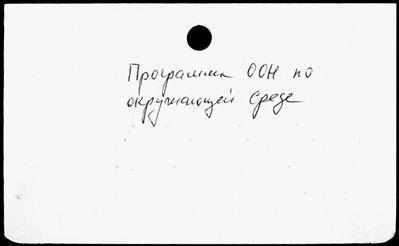 Программа ООН по
окружающей среде